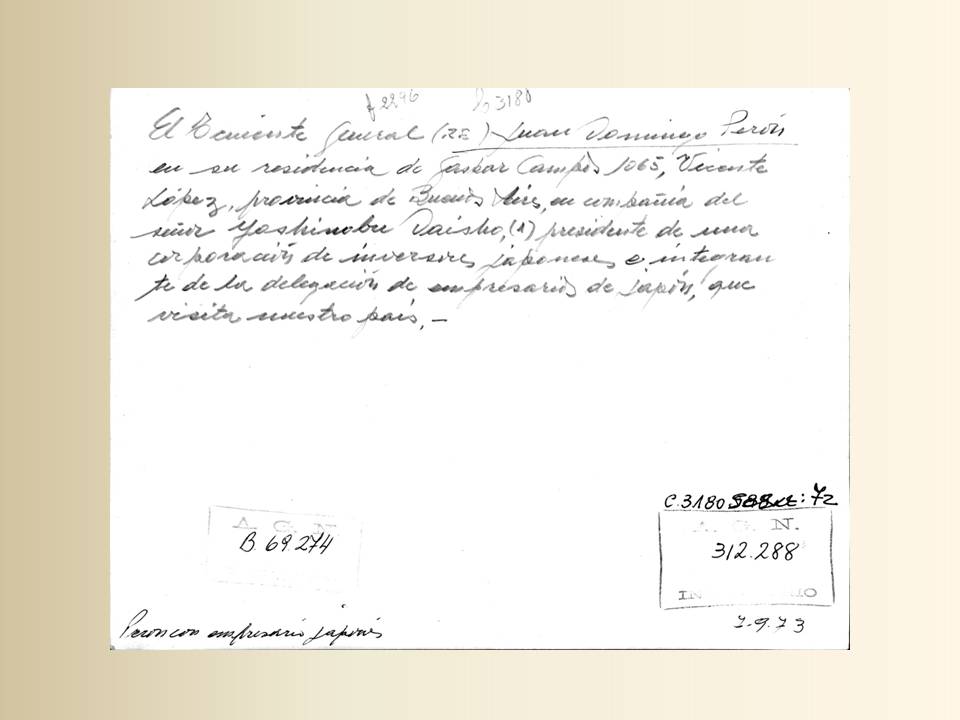 f 2296 3180
El Teniente General (RE) Juan Domingo Perón
en su residencia de Gaspar Campos 1065, Vicente
López, provincia de Buenos Aires, en compañía del
señor Yoshinobu Daisho, (1) presidente de una
corporación de inversores japoneses e integran
te de la delegación de empresarios de japón, que
visita nuestro país. —
C.3180 : 72
A. G. N.
B. 69.274
A. G. N.
312.288
7-9-73
Peron con empresario japonés